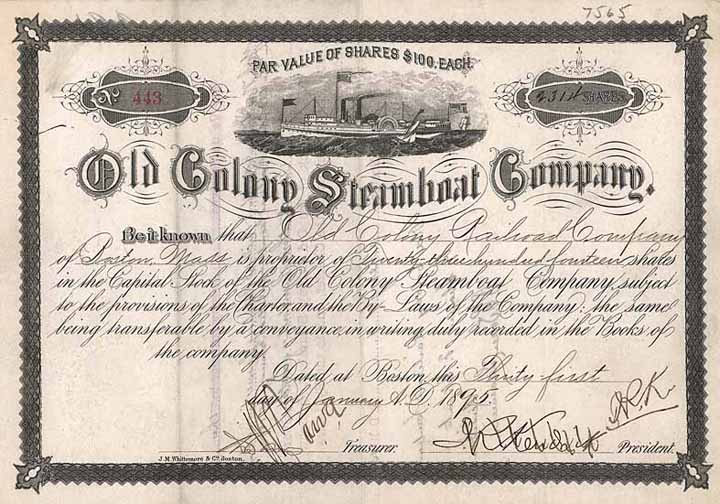 7565
PAR VALUE OF SHARES $100, EACH.
No 443
SHARES
Old Colony Steamboat Company.
Be it known that Old Colony Railroad Company
of Boston, Mass is proprietor of Twenty hundred fourteen shares
in the Capital Stock of the Old Colony Steamboat Company, subject
to the provisions of the Charter, and the By-Laws of the Company: the same
being transferable by a conveyance in writing, duly recorded in the Books of
the company.
Dated at Boston, this Thirty first
day of January A.D. 1895
Treasurer. President.
J.M. Whittemore & Co. Boston.